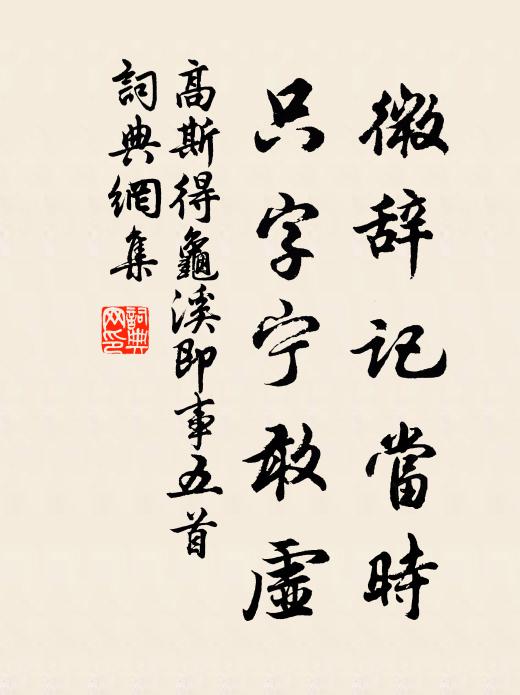 微辞记當時
只字宁敢虛
高斯得龜溪即事五首
詞典網集
詞典網印